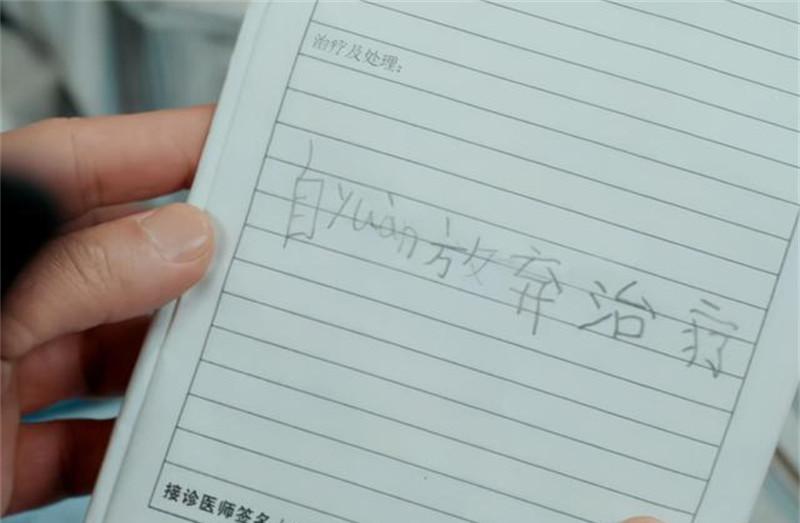 治疗及处理:
自yuàn放弃治疗
接诊医师签名